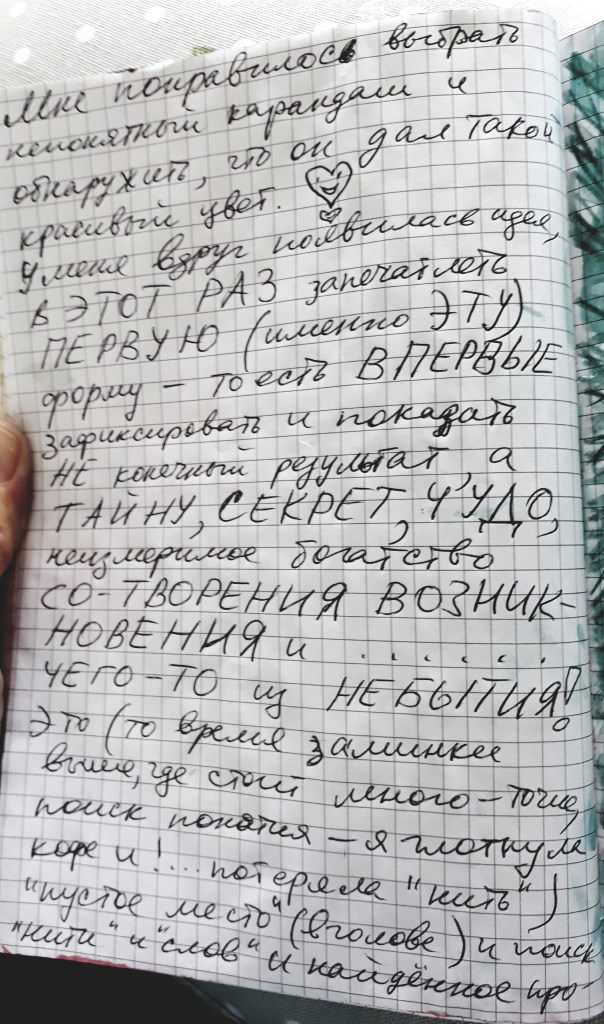 Мне понравилось выбрать
непонятный карандаш и
обнаружить, что он дал такой
красивый цвет.
У меня вдруг появилась идея,
В ЭТОТ РАЗ запечатлеть
ПЕРВУЮ (именно ЭТУ)
форму – то есть ВПЕРВЫЕ
зафиксировать и показать
НЕ конечный результат, а
ТАЙНУ, СЕКРЕТ, ЧУДО,
неизмеримое богатство
СО-ТВОРЕНИЯ ВОЗНИК-
НОВЕНИЯ и . . . . . .
ЧЕГО-ТО из НЕБЫТИЯ!
Это (то время заминки
выше, где стоит много-точие,
поиск понятия – я глотнула
кофе и !... потеряла "нить")
"пустое место" (в голове) и поиск
"нити" и "слов" и найденное про-